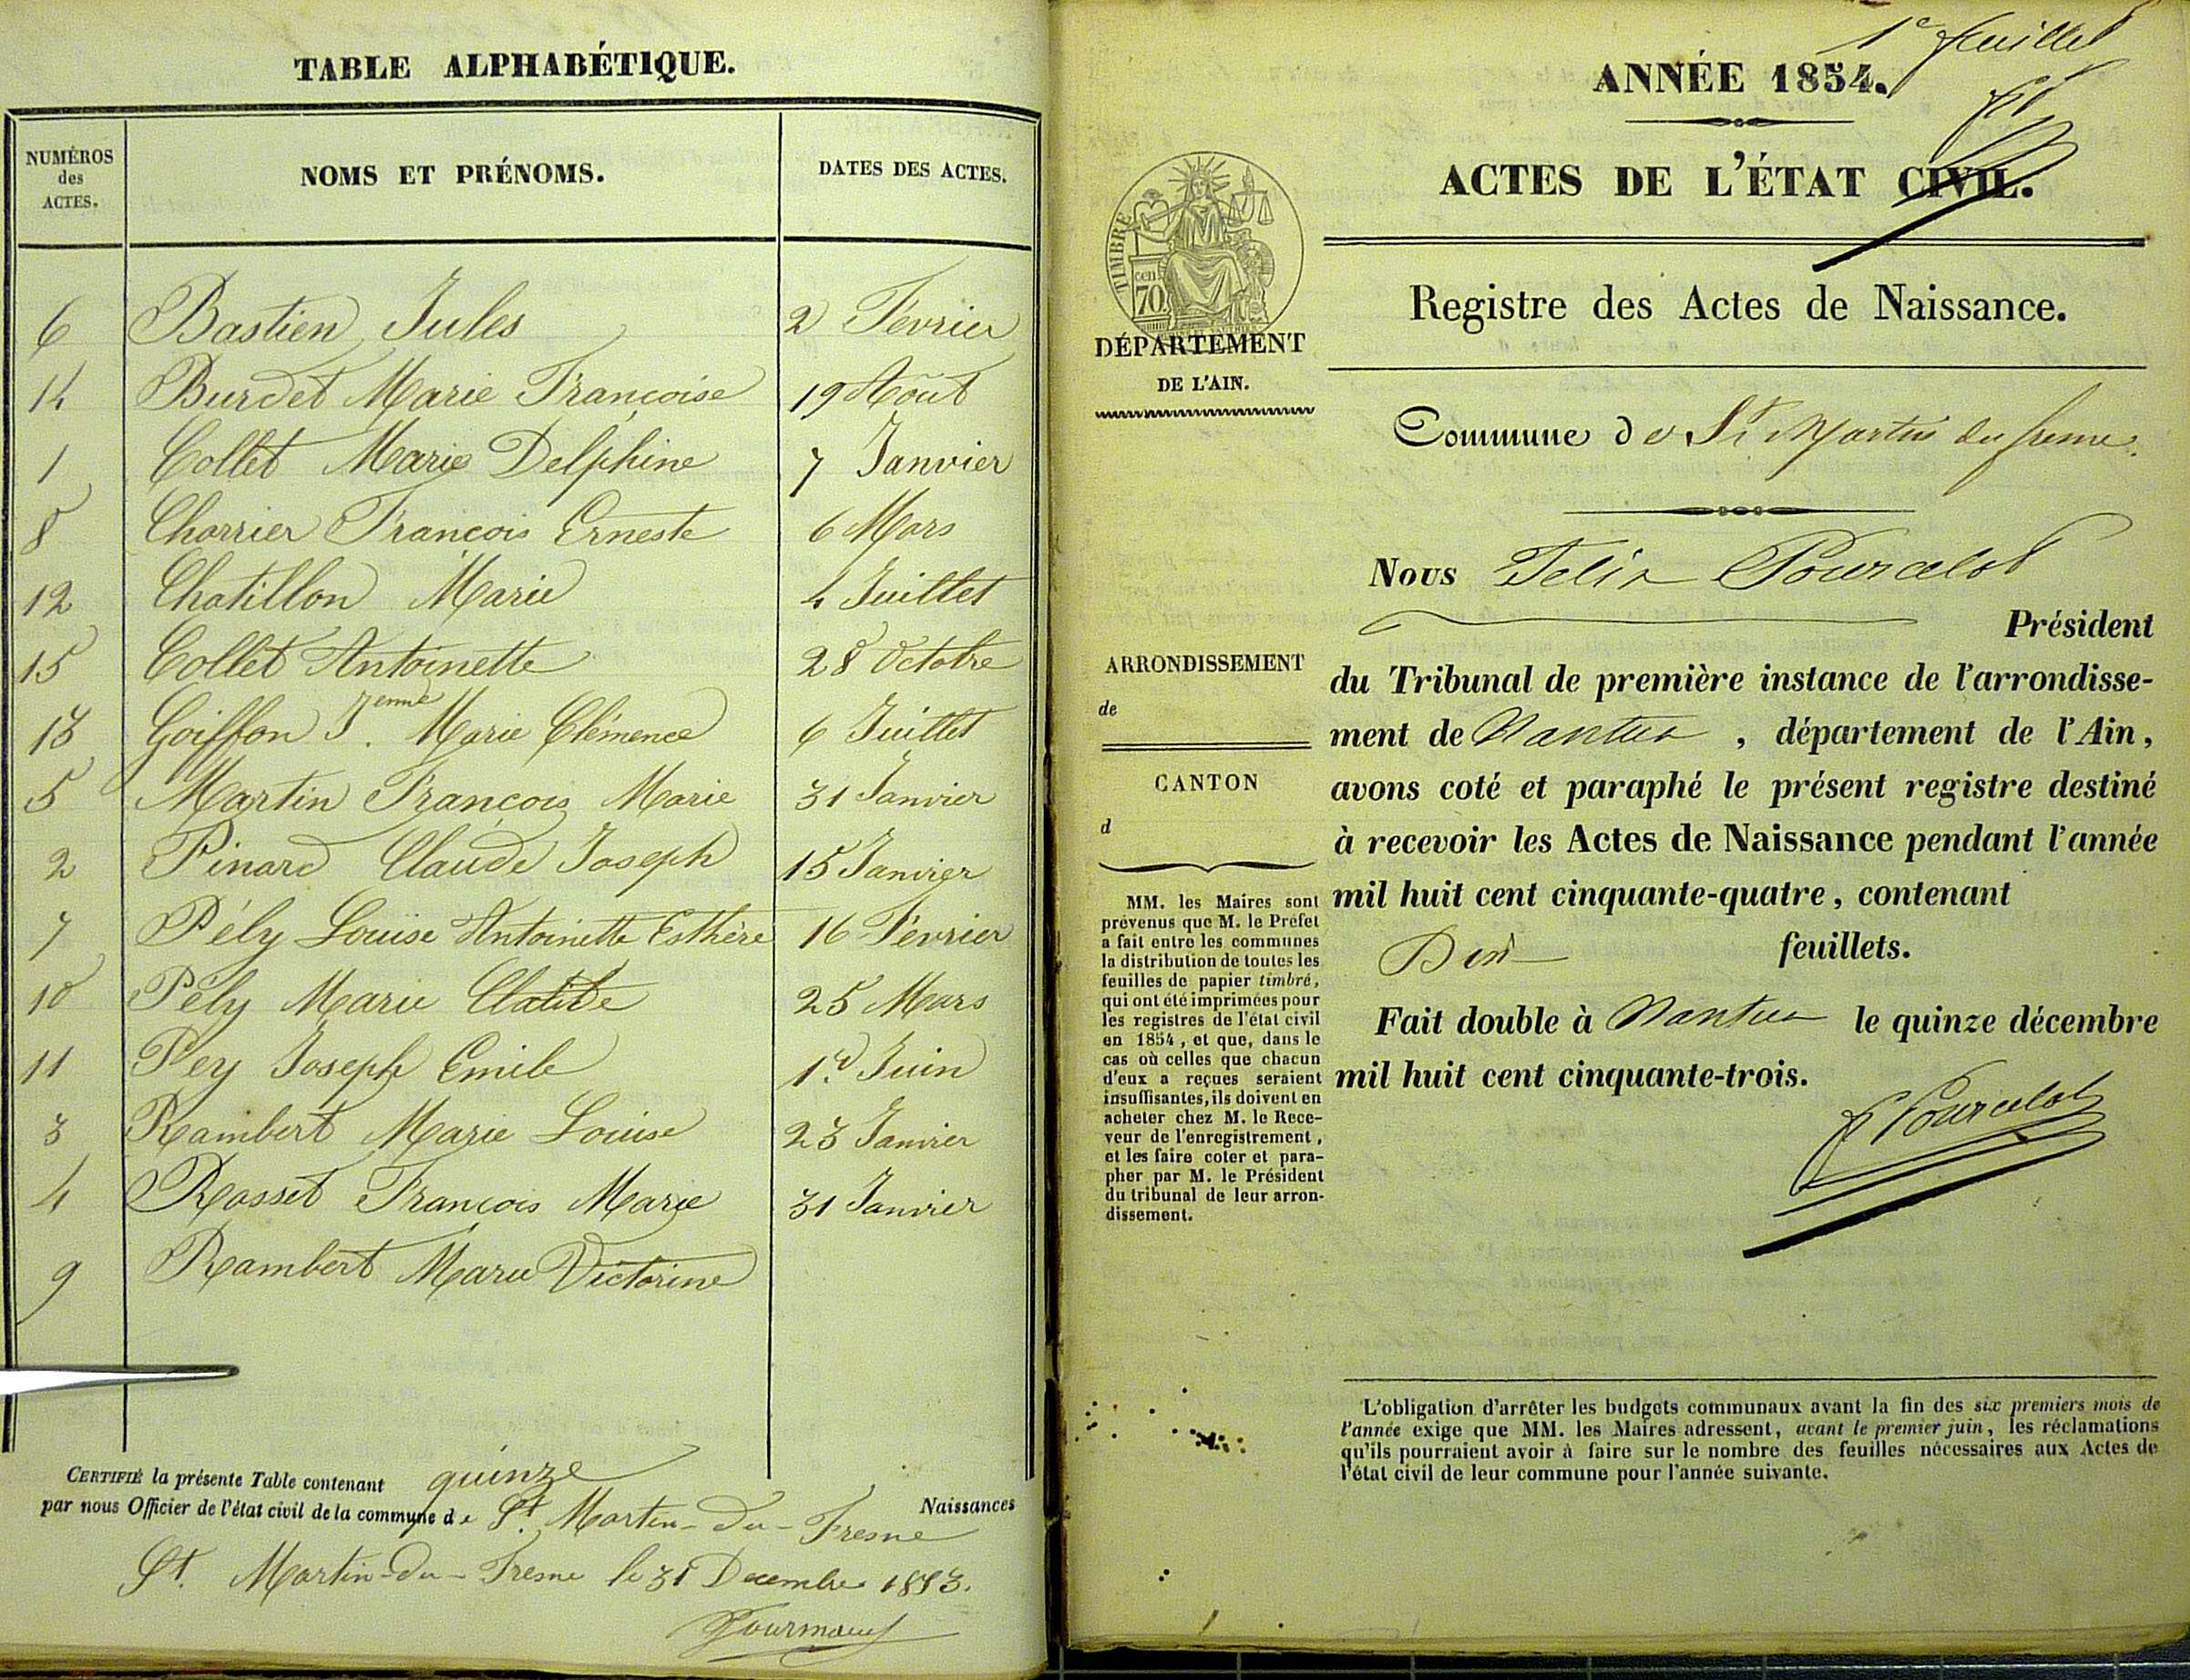 TABLE ALPHABÉTIQUE.
NUMÉROS des ACTES. NOMS ET PRÉNOMS. DATES DES ACTES.
6 Bastien Jules 2 Février
14 Burdet Marie Françoise 19 Août
1 Collet Marie Delphine 7 Janvier
8 Charrier François Erneste 6 Mars
12 Chatillon Marie 4 Juillet
15 Collet Antoinette 28 Octobre
13 Goiffon J.enne Marie Clémence 6 Juillet
5 Martin François Marie 31 Janvier
2 Pinard Claude Joseph 15 Janvier
7 Pély Louise Antoinette Esthère 16 Février
10 Pély Marie 25 Mars
11 Pey Joseph Emile 1.er Juin
3 Rambert Marie Louise 23 Janvier
4 Rosset François Marie 31 Janvier
9 Rambert Marie Victorine
CERTIFIÉ la présente Table contenant quinze Naissances
par nous Officier de l'état civil de la commune de St. Martin-du-Fresne
St. Martin-du-Fresne le 31 Decembre 1853.
1e feuillet
ANNÉE 1854.
ACTES DE L'ÉTAT CIVIL.
TIMBRE
70 cen
DÉPARTEMENT
DE L'AIN.
Registre des Actes de Naissance.
Commune de St Martin du fresne
Nous Felix Pourcelot
Président
ARRONDISSEMENT
de
CANTON
d
du Tribunal de première instance de l'arrondisse-
ment de Nantua, département de l'Ain,
avons coté et paraphé le présent registre destiné
à recevoir les Actes de Naissance pendant l'année
mil huit cent cinquante-quatre, contenant
feuillets.
Fait double à Nantua le quinze décembre
mil huit cent cinquante-trois.
F Pourcelot
MM. les Maires sont
prévenus que M. le Préfet
a fait entre les communes
la distribution de toutes les
feuilles de papier timbré,
qui ont été imprimées pour
les registres de l'état civil
en 1854, et que, dans le
cas où celles que chacun
d'eux a reçues seraient
insuffisantes, ils doivent en
acheter chez M. le Rece-
veur de l'enregistrement,
et les faire coter et para-
pher par M. le Président
du tribunal de leur arron-
dissement.
L'obligation d'arrêter les budgets communaux avant la fin des six premiers mois de
l'année exige que MM. les Maires adressent, avant le premier juin, les réclamations
qu'ils pourraient avoir à faire sur le nombre des feuilles nécessaires aux Actes de
l'état civil de leur commune pour l'année suivante.